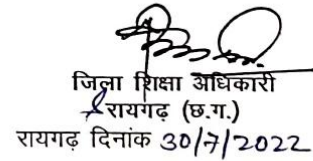 जिला शिक्षा अधिकारी
रायगढ़ (छ.ग.)
रायगढ़ दिनांक 30/7/2022